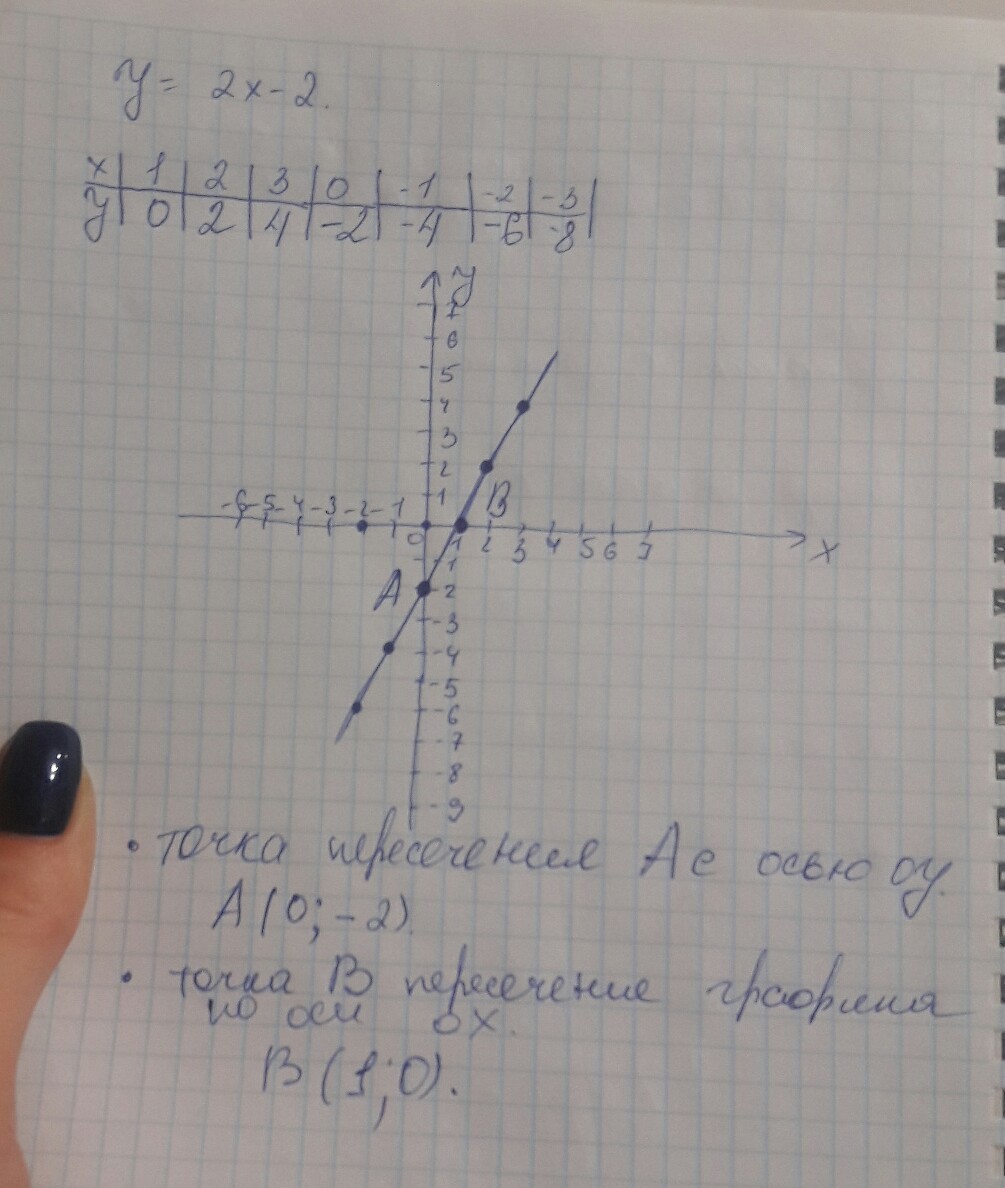 y = 2x - 2.
x | 1 | 2 | 3 | 0 | -1 | -2 | -3 |
y | 0 | 2 | 4 | -2 | -4 | -6 | -8 |
y
7
6
5
4
3
2
1
B
-6 -5 -4 -3 -2 -1
0 1 2 3 4 5 6 7
x
-1
A -2
-3
-4
-5
-6
-7
-8
-9
• точка пересечения A с осью oy.
A (0; -2)
• точка B пересечение графика
по оси ox.
B (1; 0).